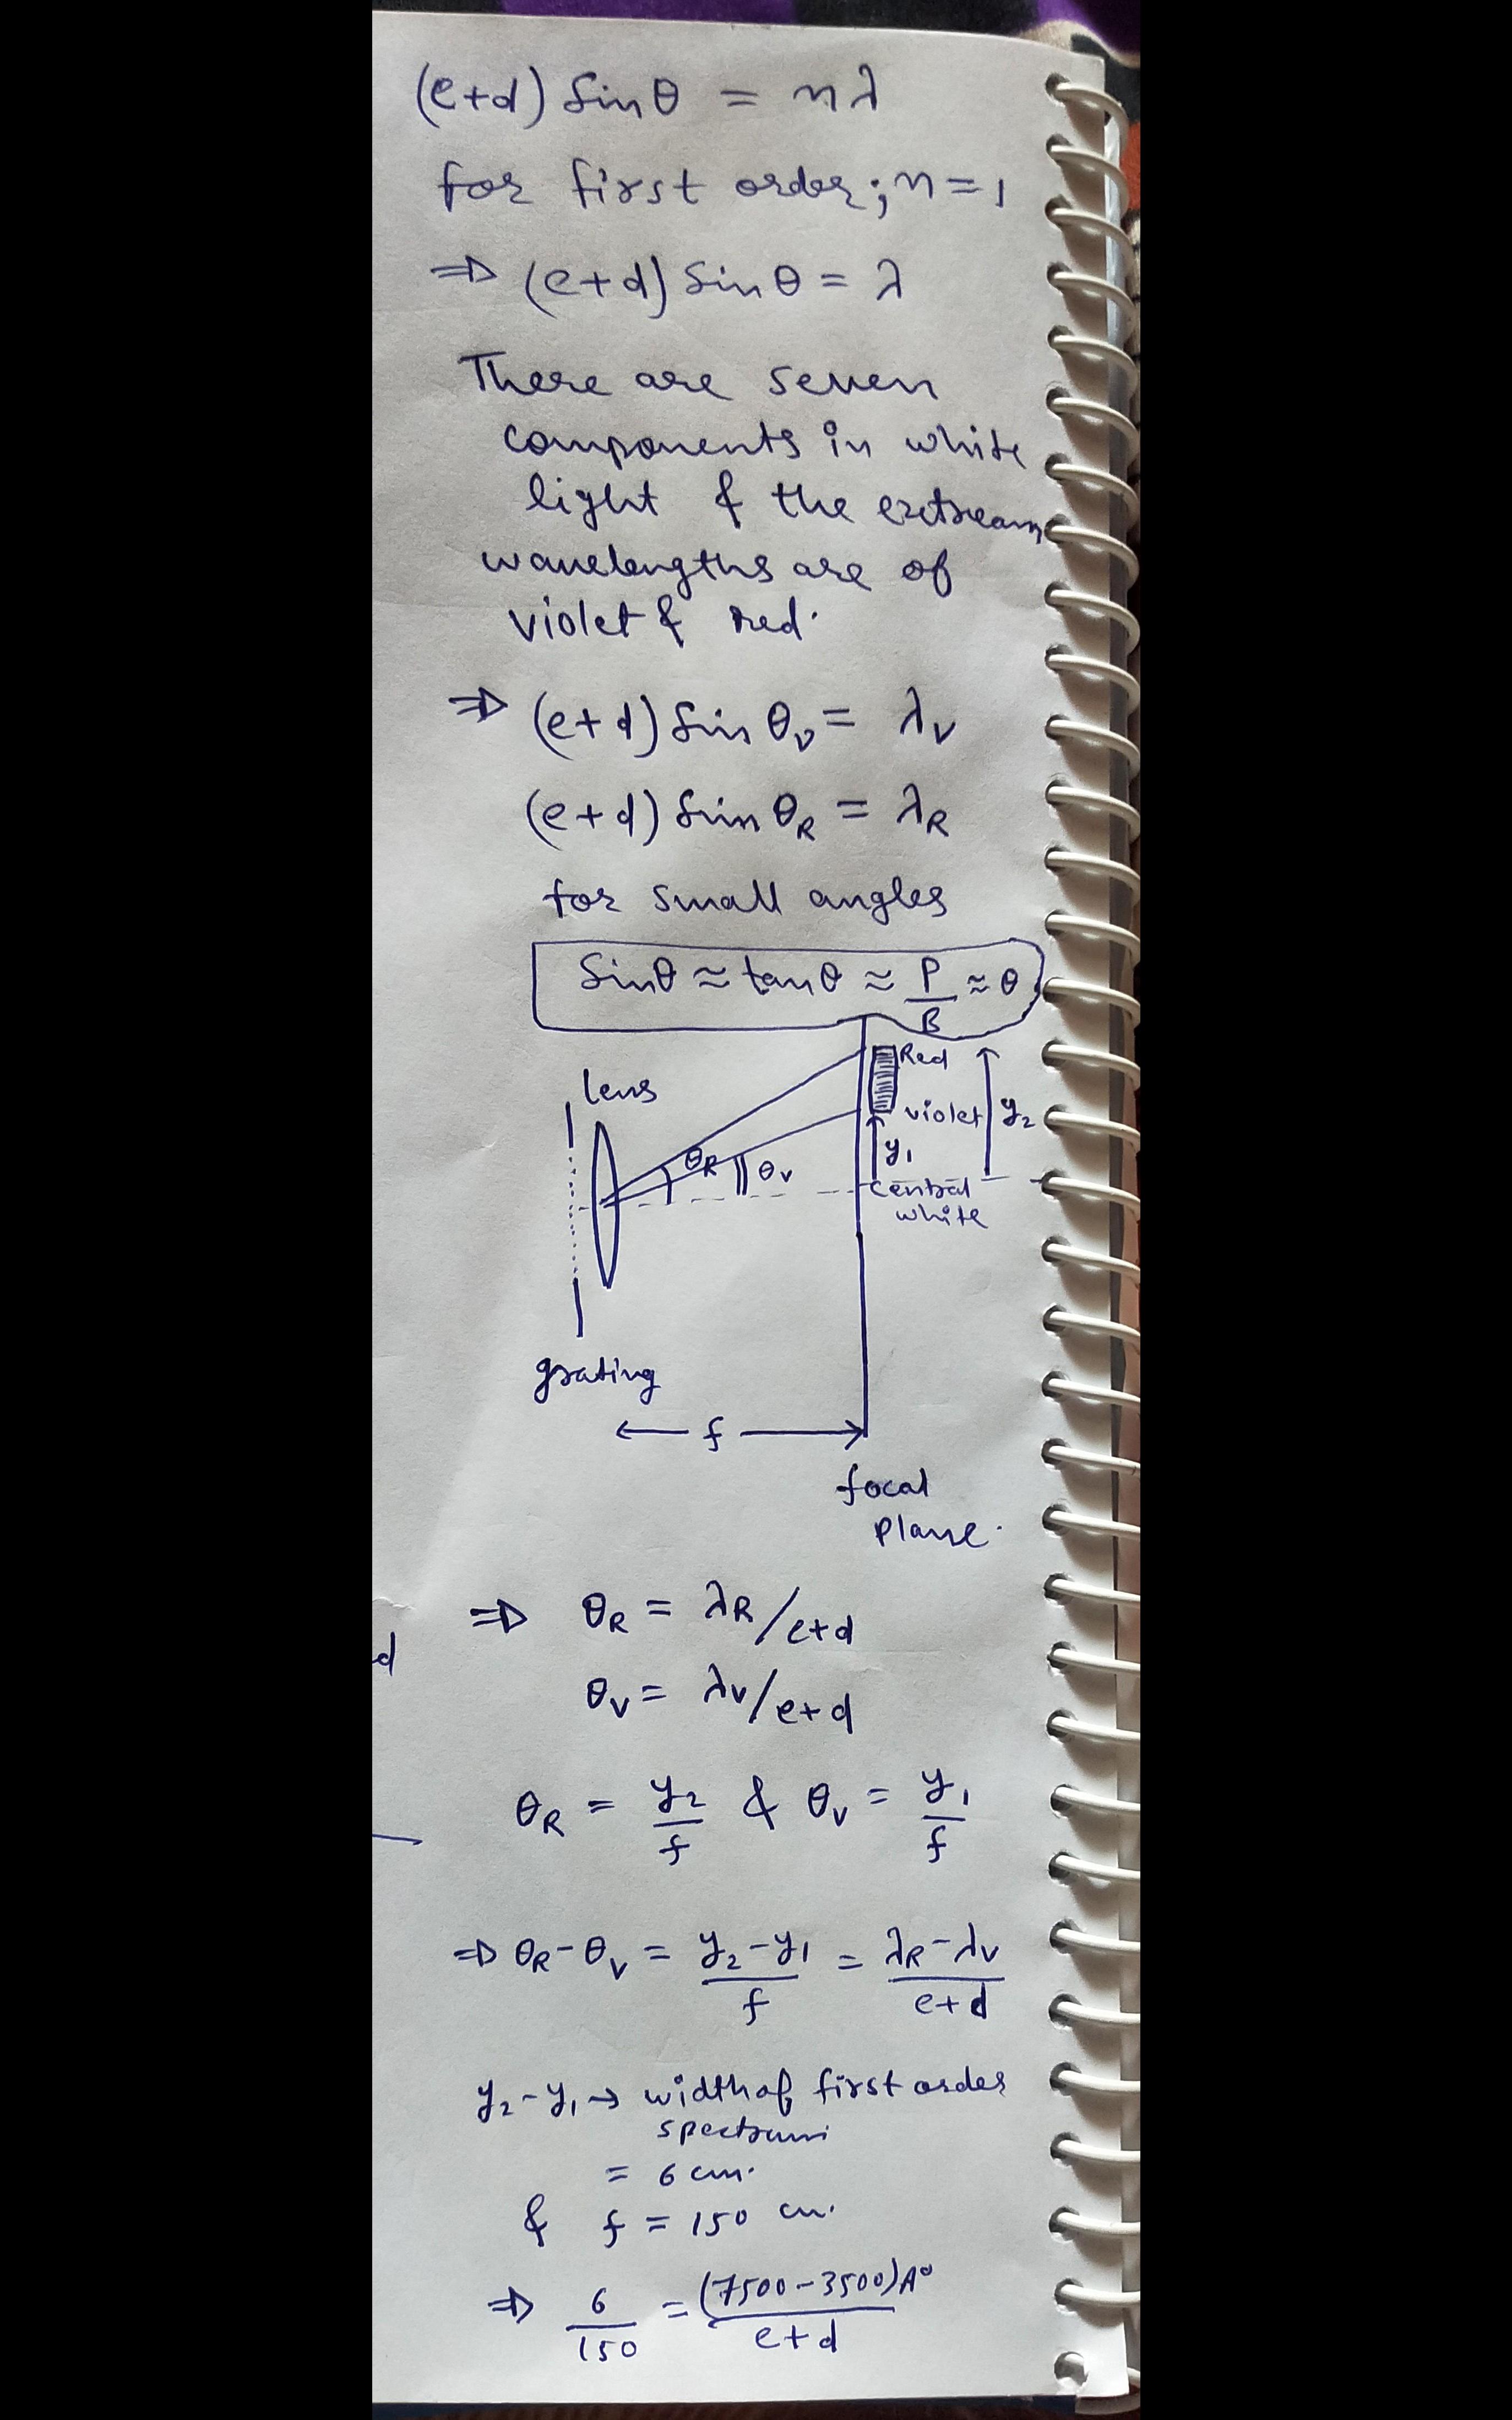 (e+d) Sinθ = nλ
for first order; n=1
⇒ (e+d) Sinθ = λ
There are seven
components in white
light & the extream
wavelengths are of
violet & red.
⇒ (e+d) Sin θv = λv
(e+d) Sin θR = λR
for small angles
Sinθ ≈ tanθ ≈ P/B ≈ θ
lens
Red
violet
y2
y1
θR
θv
central
white
grating
f
focal
plane.
⇒ θR = λR/e+d
d
θv = λv/e+d
θR = y2/f & θv = y1/f
⇒ θR-θv = y2-y1/f = λR-λv/e+d
y2-y1 → width of first order
spectrum
= 6 cm.
& f = 150 cm.
⇒ 6/150 = (7500-3500)A°/e+d